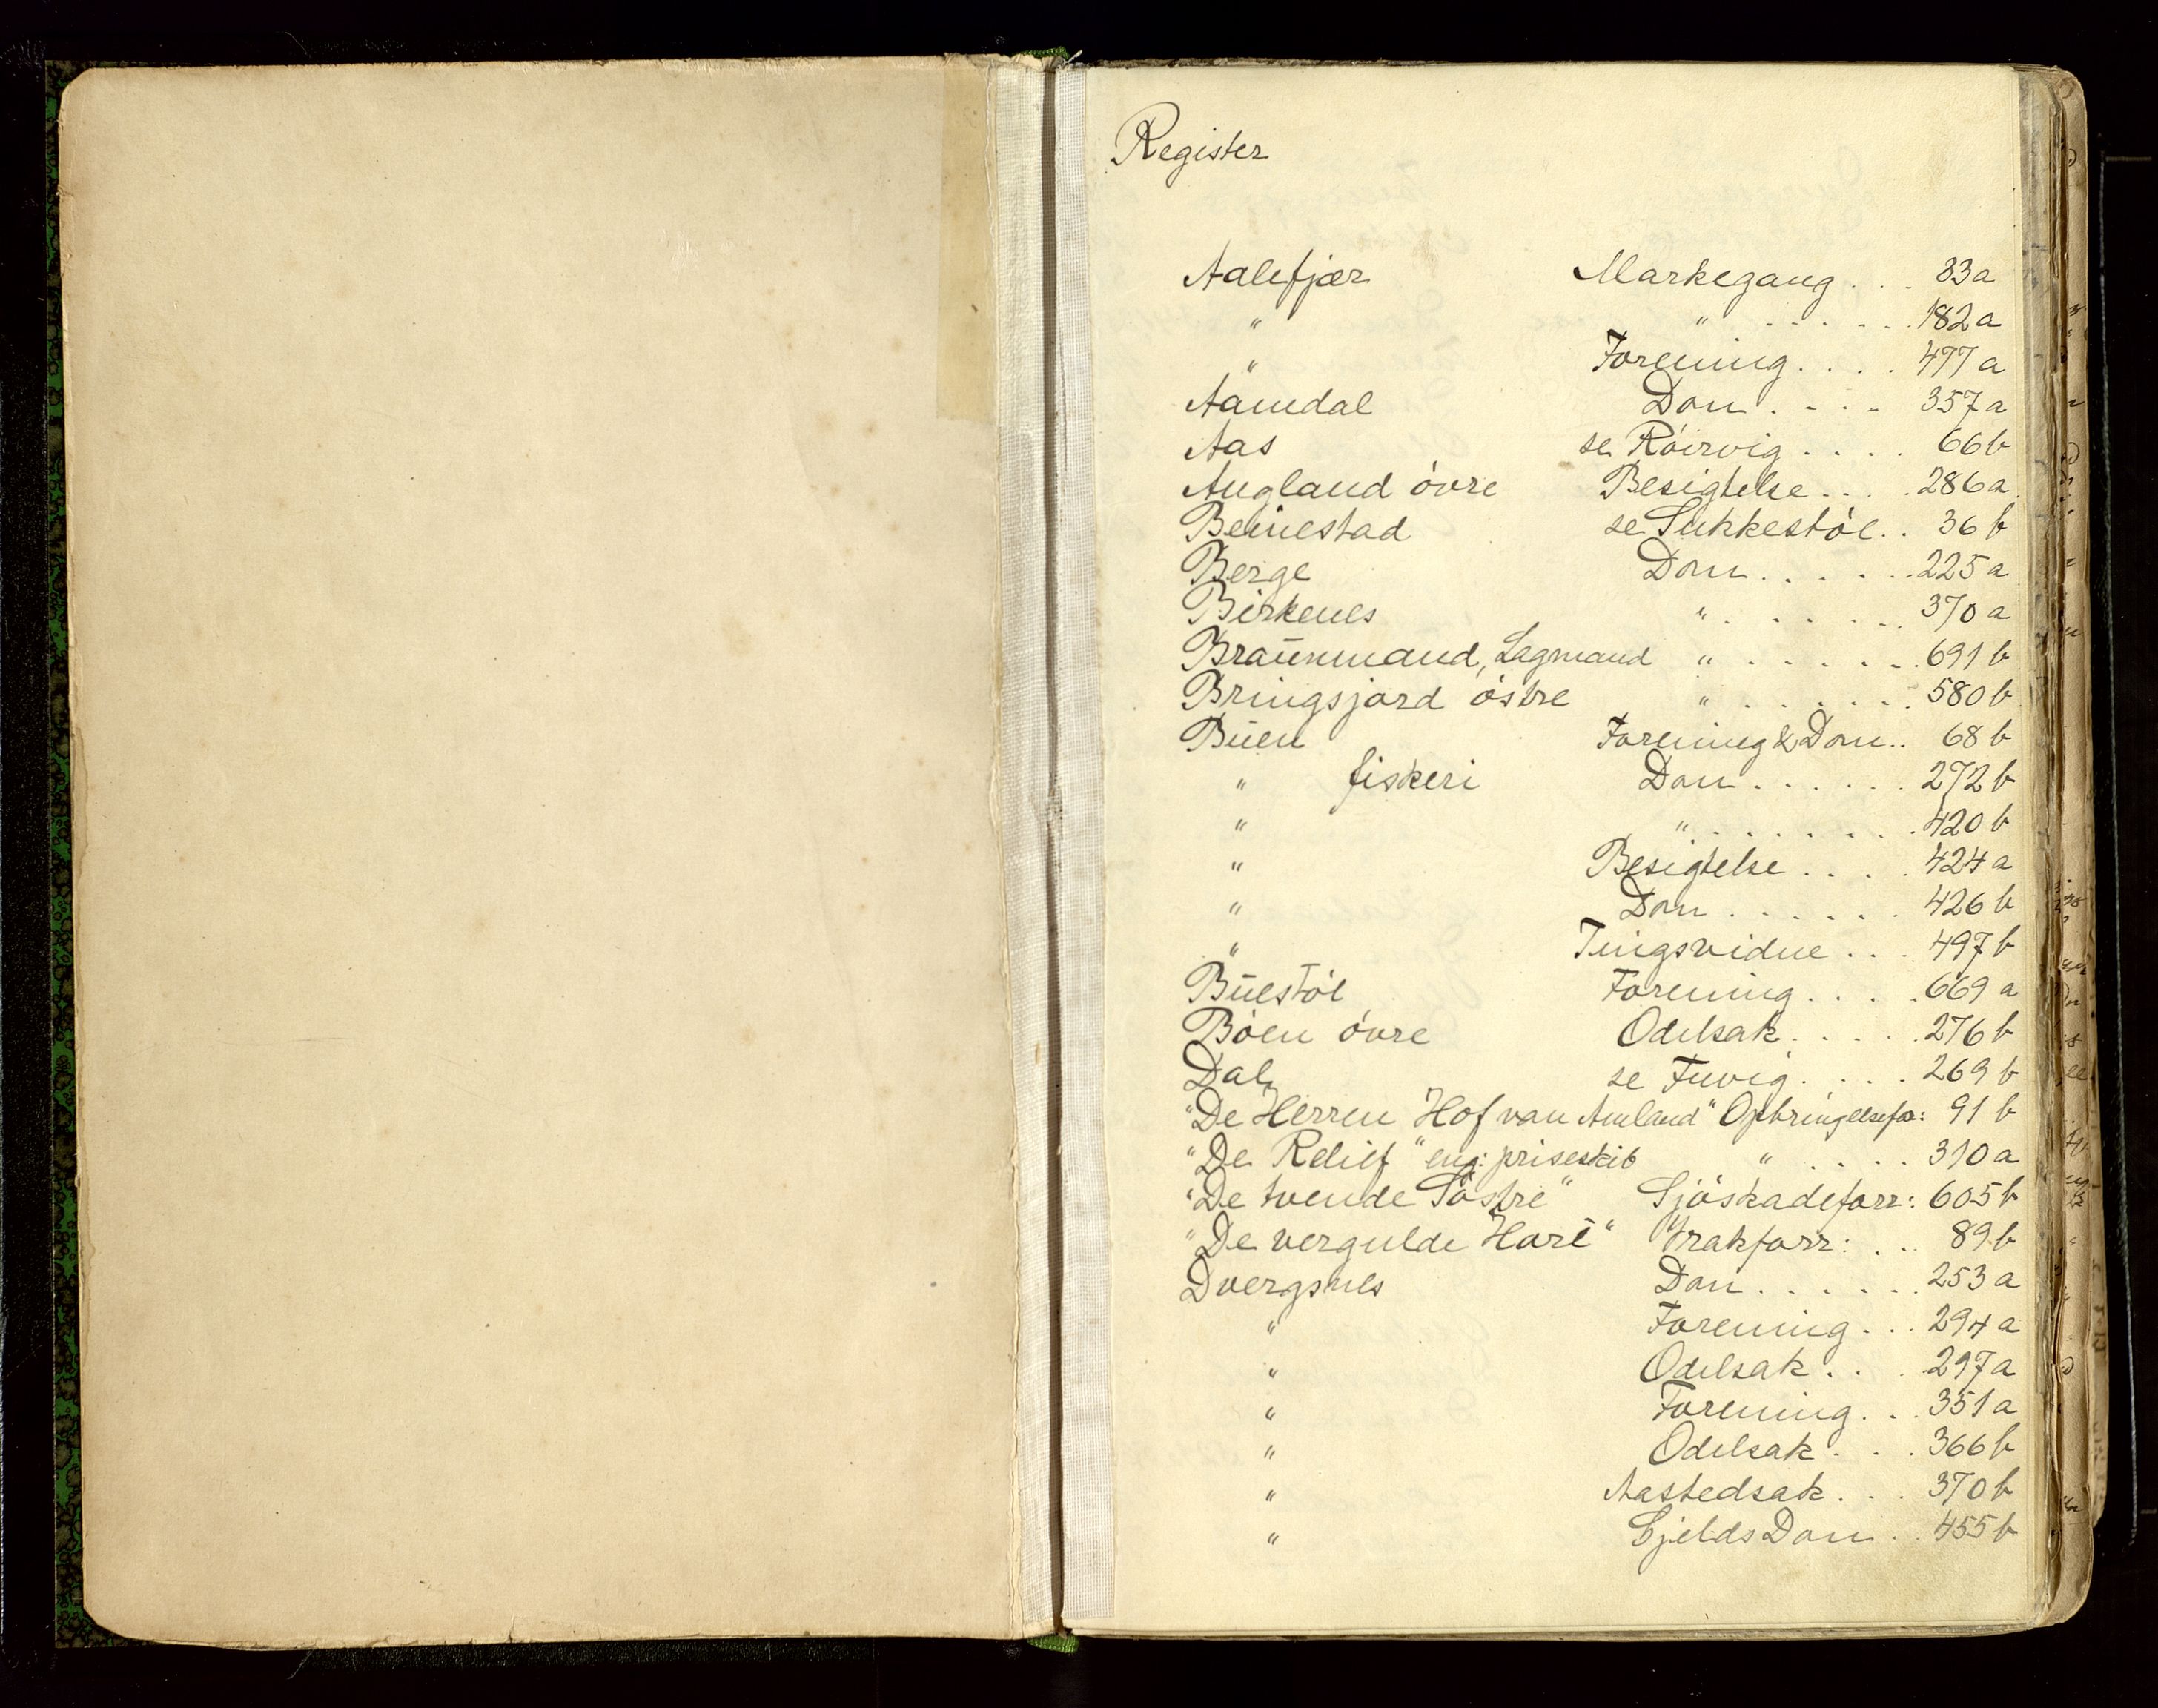 Register
Aalefjær Markegang . . . 33a
" " . . . . . . 182a
" Forening . . . . 477a
Aamdal Dom . . . . 357a
Aas se Röirvig . . . . 66b
Augland övre Besigtelse . . . . 286a
Beinestad se Sukkestöl . . 36b
Berge Dom . . . . . . 225a
Birkenes " . . . . . . . 370a
Braünmand, Lagmand " . . . . . . 691b
Bringsjord östre " . . . . . . . 580b
Büen Forening & Dom . . 68b
" fiskeri Dom . . . . . . 272b
" " . . . . . . . . 420b
" Besigtelse . . . . 424a
" Dom . . . . . . 426b
" Tingsvidne . . . 497b
Büestöl Forening . . . . . 669a
Böen övre Odelsak . . . . . 276b
Dal se Tuvig . . . . 269b
"De Herren Hof van Amland" Opbringelsefor: 91b
"De Relief" eng: priseskib " . . . . 310a
"De tvende Söstre" Sjöskadeforr: 605b
"De vergulde Hare" Vrakforr: . . . 89b
Dvergsnes Dom . . . . . . 253a
" Forening . . . 294a
" Odelsak . . . 297a
" Forening . . . 351a
" Odelsak . . . 366b
" Aastedsak . . . 370b
" Gjelds Dom . . 455b